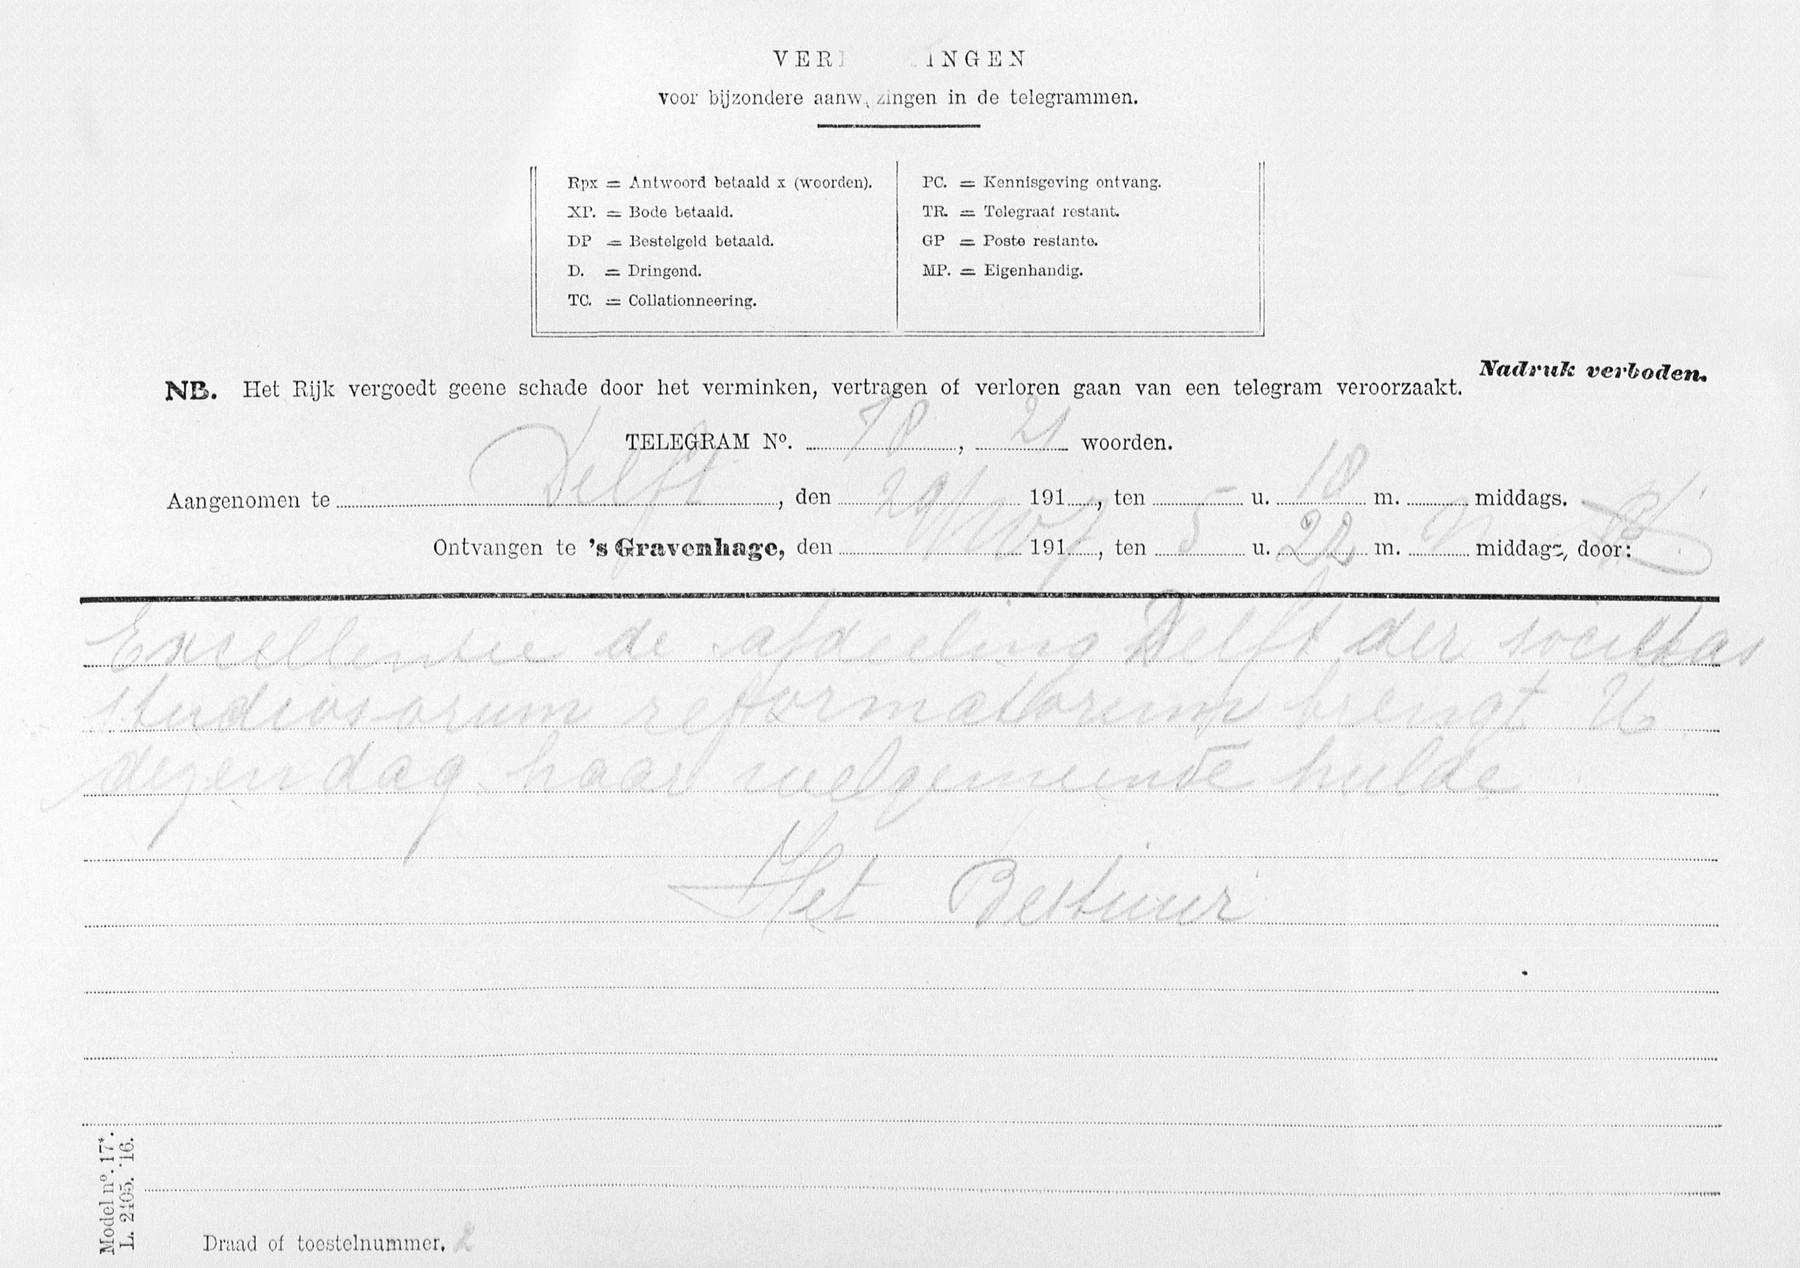 VER INGEN
voor bijzondere aanw zingen in de telegrammen.
Rpx = Antwoord betaald x (woorden).
XP. = Bode betaald.
DP = Bestelgeld betaald.
D. = Dringend.
TC. = Collationneering.
PC. = Kennisgeving ontvang.
TR. = Telegraaf restant.
GP = Poste restante.
MP. = Eigenhandig.
Nadruk verboden.
NB. Het Rijk vergoedt geene schade door het verminken, vertragen of verloren gaan van een telegram veroorzaakt.
TELEGRAM No. 78, 21 woorden.
Aangenomen te Delft, den 29/10 1917, ten 5 u. 10 m. middags.
Ontvangen te 's Gravenhage, den 191, ten 5 u. 22 m. n middags, door:
Excellentie de afdeeling Delft der societas
studiosorum reformatorum brengt U
dezen dag haar welgemeende hulde
Het Bestuur
Model no. 17*.
L. 2405. '16.
Draad of toestelnummer. 2